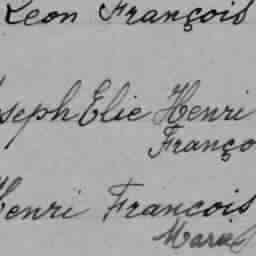 Leon François
oseph Elie Henri
Franço
Henri François
Marie